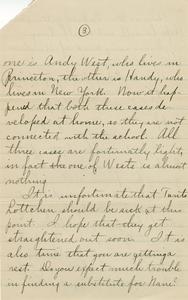 (3)
one is Andy West, who lives in
Princeton, the other is Handy, who
lives in New York. Now it hap-
pend that both these cases de-
veloped at home, so they are not
connected with the school. All
three cases are fortunately light,
in fact the one of Wests is almost
nothing.
It is unfortunate that Tante
Lottchen should be sick at this
point. I hope that they get
straightened out soon. It is
also time that you are getting a
rest. Do you expect much trouble
in finding a substitute for